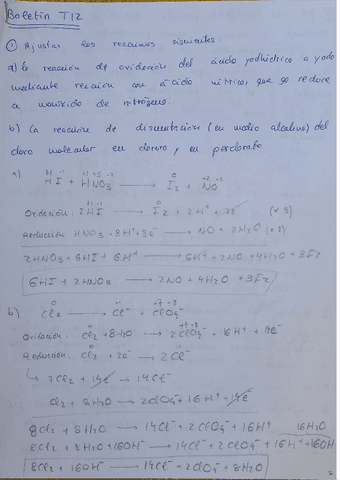 Boletín T12
① Ajustar las reacciones siguientes.
a) la reacción de oxidación del ácido yodhídrico a yodo
mediante reacción con ácido nítrico, que se reduce
a monóxido de nitrógeno.
b) La reacción de dismutación (en medio alcalino) del
cloro molecular en cloruro y en perclorato
a) +1 -1 +1 +5 -2 0 +2 -2
HI + HNO3 → I2 + NO
Oxidación: 2HI → I2 + 2H+ + 2e- (x3)
Reducción: HNO3 + 3H+ + 3e- → NO + 2H2O (x2)
2HNO3 + 6HI + 6H+ → 6H+ + 2NO + 4H2O + 3I2
6HI + 2HNO3 → 2NO + 4H2O + 3I2
b) 0 -1 +7 -2
Cl2 → Cl- + ClO4-
Oxidación: Cl2 + 8H2O → 2ClO4- + 16H+ + 14e-
Reducción: Cl2 + 2e- → 2Cl-
↳ 7Cl2 + 14e- → 14Cl-
Cl2 + 8H2O → 2ClO4- + 16H+ + 14e-
8Cl2 + 8H2O → 14Cl- + 2ClO4- + 16H+ 16H2O
8Cl2 + 8H2O + 16OH- → 14Cl- + 2ClO4- + 16H+ + 16OH-
8Cl2 + 16OH- → 14Cl- + 2ClO4- + 8H2O